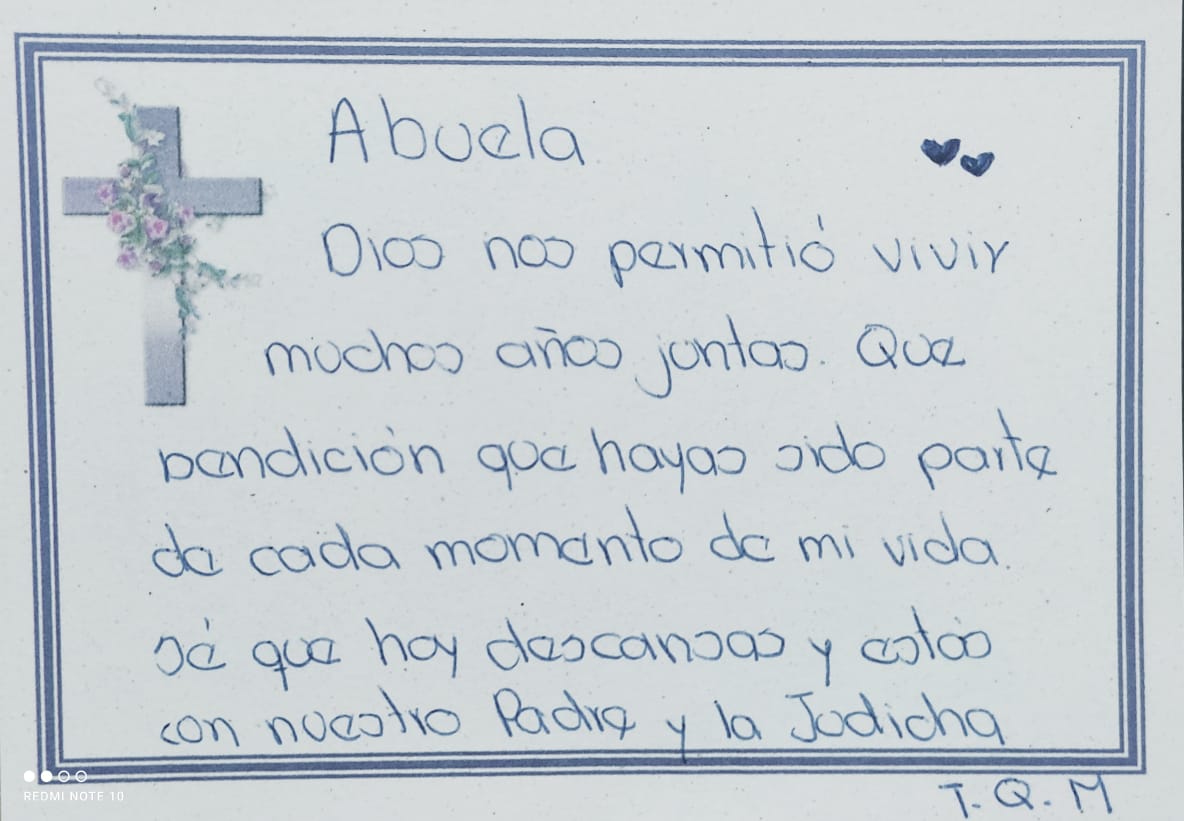 Abuela
Dios nos permitió vivir
muchos años juntas. Que
bendición que hayas sido parte
de cada momento de mi vida.
Sé que hoy descansas y estás
con nuestro Padre y la Judicha
T. Q. M
REDMI NOTE 10